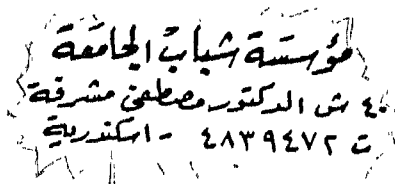 مؤسسة شباب الجامعة
٤٠ ش الدكتور مصطفى مشرفة
ت ٤٨٣٩٤٧٢ - اسكندرية